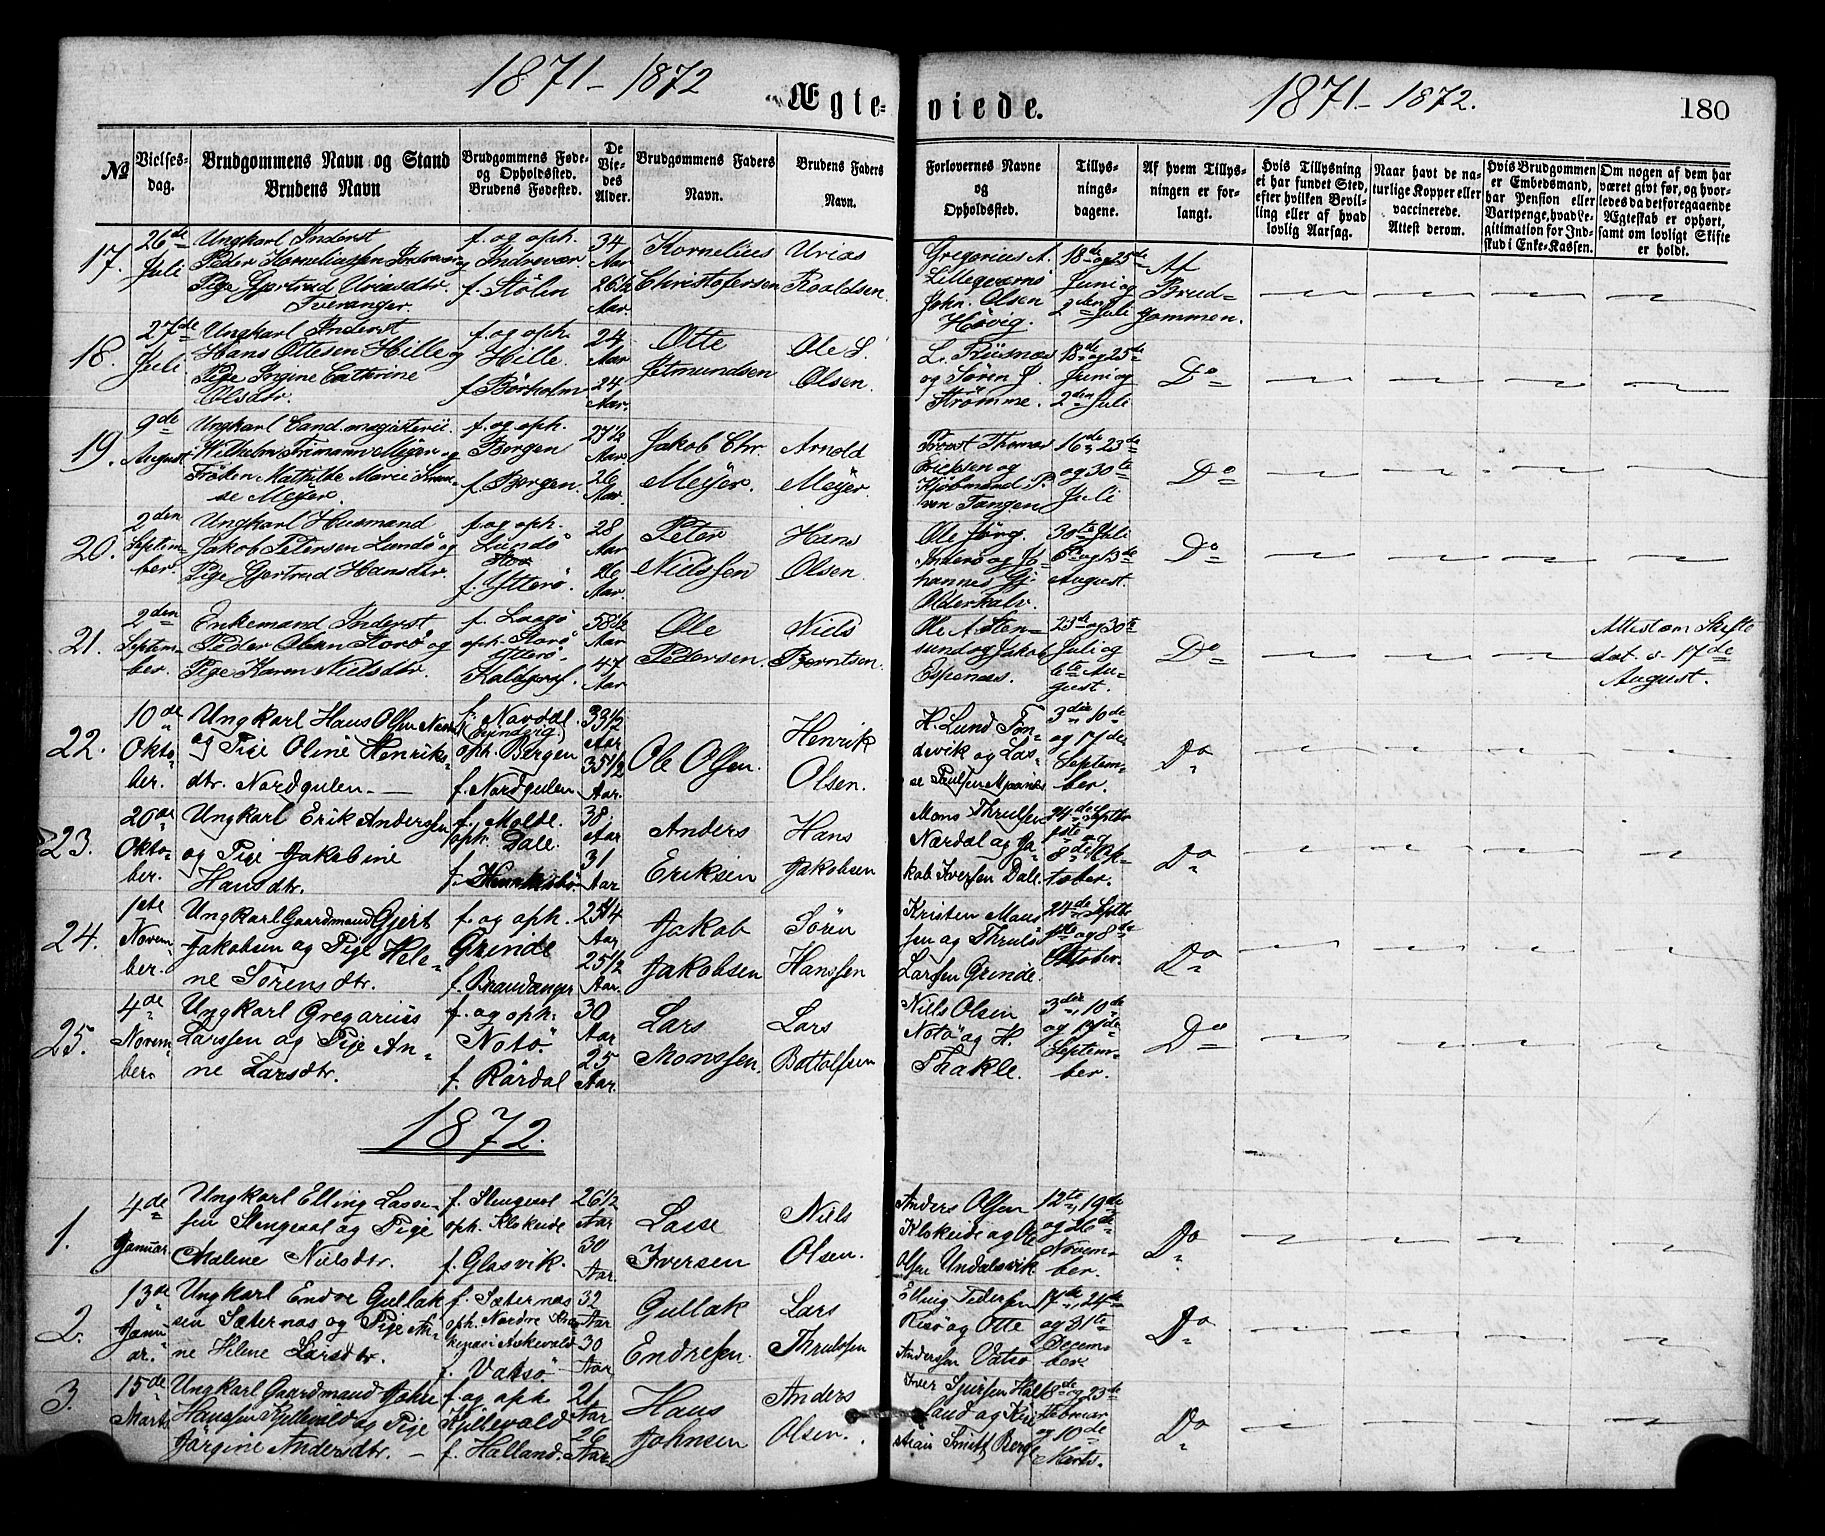 1871 - 1872
Ægte-
viede.
1871 - 1872.
180
No
Vielses-dag.
Brudgommens Navn og Stand
Brudens Navn
Brudgommens Føde- og Opholdssted.
Brudens Fødested.
De Vie-des Alder.
Brudgommens Faders Navn.
Brudens Faders Navn.
Forlovernes Navne og Opholdssted.
Tillys-nings-dagene.
Af hvem Tillys-ningen er for-langt.
Hvis Tillysning ei har fundet Sted, efter hvilken Bevil-ling eller af hvad lovlig Aarsag.
Naar havt de na-turlige Kopper eller vaccinerede. Attest derom.
Hvis Brudgommen er Embedsmand, har Pension eller Vartpenge, hvad Le-gitimation for Ind-skud i Enke-Kassen.
Om nogen af dem har været givt før, og hvor-ledes da det foregaaende Ægteskab er ophørt, samt om lovligt Skifte er holdt.
17.
26de Juli
Ungkarl Inderst
Peder Korneliussen Indrevær og
Pige Gjertrud Uriasdtr.
Tveranger.
f. og oph.
Indrevær
f. Stølen
34 Aar
26 1/2 Aar.
Kornelius
Christofersen
Urias
Roaldsen.
Gregorius A.
Lillegraves
John. Olsen
Høvig.
18de og 25de
Juni og
2den Juli
Af
Brud-
gommen.
18.
27de Juli
Ungkarl Inderst
Hans Ottesen Hille og
Pige Ingine Cathrine
Olsdtr.
f. og oph.
Hille.
f. Børholm
24 Aar
24 Aar.
Otte
Jetmundsen
Ole L.
Olsen.
L. Risnæs
og Søren J.
Strømme.
18de og 25de
Juni og
2den Juli
Do
19.
9de August
Ungkarl Cand. magisterii
Wilhelm Frimann Meyer og
Frøken Mathilde Marie
Meyer.
f. og oph.
Bergen
f. Bergen.
27 1/2 Aar
26 Aar.
Jakob Chr.
Meyer.
Arnold
Meyer.
Provst Thomas
Erichsen og
Kjøbmand P.
von Tangen
16de, 23de
og 30te
Juli
Do
20.
2den Septem-
ber.
Ungkarl Husmand
Jakob Petersen Lundø og
Pige Gjertrud Hansdtr.
f. og oph.
Lundø
f. Ytterø.
28 Aar
26 Aar.
Peter
Nielssen
Hans
Olsen.
Ole Jørg.
Inderø og Jo-
hannes Gj.
Olderkalv.
30te Juli
6te og 13de
August.
Do
21.
2den Septem-
ber.
Enkemand Inderst
Peder Olsen Storø og
Pige Karen Nilsdtr.
f. Langø
oph. Storø
Ytterø.
58 1/2 Aar
47 Aar
Ole
Pedersen.
Niels
Berntsen.
Ole A. Sten-
sund og Jakob
Espenæs.
23de og 30te
Juli og
6te Au-
gust.
Do
Attest om Skifte
dat. 17de
August.
22.
10de Okto-
ber.
Ungkarl Hans Olsen
og Pige Oline Henriks-
dtr. Nordgulen.
f. Nordal
(Evindvig)
oph. Bergen
f. Nordgulen
33 1/2 Aar
35 1/2 Aar.
Ole Olsen.
Henrik
Olsen.
H. Lund Ton-
devik og Las-
se Poulsen
3die, 10de
og 17de
Septem-
ber.
Do
23.
20de Okto-
ber.
Ungkarl Erik Anderssen
og Pige Jakobine
Hansdtr.
f. Molde.
oph. Dale.
38 Aar
31 Aar
Anders
Eriksen
Hans
Jakobsen
Mons Thrulsen
Nærdal og Ja-
kob Iversen Dale.
24de Septbr
1ste og
8de Ok-
tober.
Do
24.
1ste Novem-
ber.
Ungkarl Gaardmand Gjert
Jakobsen og Pige Hele-
ne Sørensdtr.
f. og oph.
Grinde
f. Brandanger
25 1/4 Aar
25 1/2 Aar.
Jakob
Jakobsen
Søren
Hanssen
Kristen Mons-
sen og Thruls
Larssen Grinde.
24de Septbr
1ste og 8de
Oktober.
Do
25.
4de Novem-
ber.
Ungkarl Gregorius
Larssen og Pige An-
ne Larsdtr.
f. og oph.
Notø.
f. Rørdal
30 Aar
25 Aar.
Lars
Monssen.
Lars
Bottolfsen
Nils Olsen
Notø og H.
Thakle.
3die, 10de
og 17de
Septem-
ber.
Do
1872.
1.
4de Januar.
Ungkarl Elling Lasse-
sen Stengesal og Pige
Malene Nielsdtr.
f. Stengesal
oph. Kloheide
f. Glosvik.
26 1/2 Aar
30 Aar.
Lasse
Iversen
Niels
Olsen.
Anders Olsen
Kloheide og Ole
Olsen Undalsvik
12te, 19de
og 26de
Novem-
ber.
Do
2.
13de Janu-
ar.
Ungkarl Endre Gullak
sen Sæternæs og Pige An-
ne Helene Larsdtr.
f. Sæternæs
oph. Nordre
i Askevold
f. Vatsø.
32 Aar
30 Aar
Gullak
Endresen.
Lars
Thrulssen
Elling Pedersen
Risø og Otte
Anderssen Vatsø
17de, 24de
og 31te
Decem-
ber.
Do
3.
15de Marts
Ungkarl Gaardmand John
Hanssen Kjellevold og Pige
Jørgine Andersdtr.
f. og oph.
Kjellevold
f. Halland.
21 Aar
26 Aar
Hans
Johnsen
Anders
Olsen.
Iver Sjursen Hal-
land og Kri-
stian Smith Berge
18de og 23de
Februar
og 10de
Marts.
Do